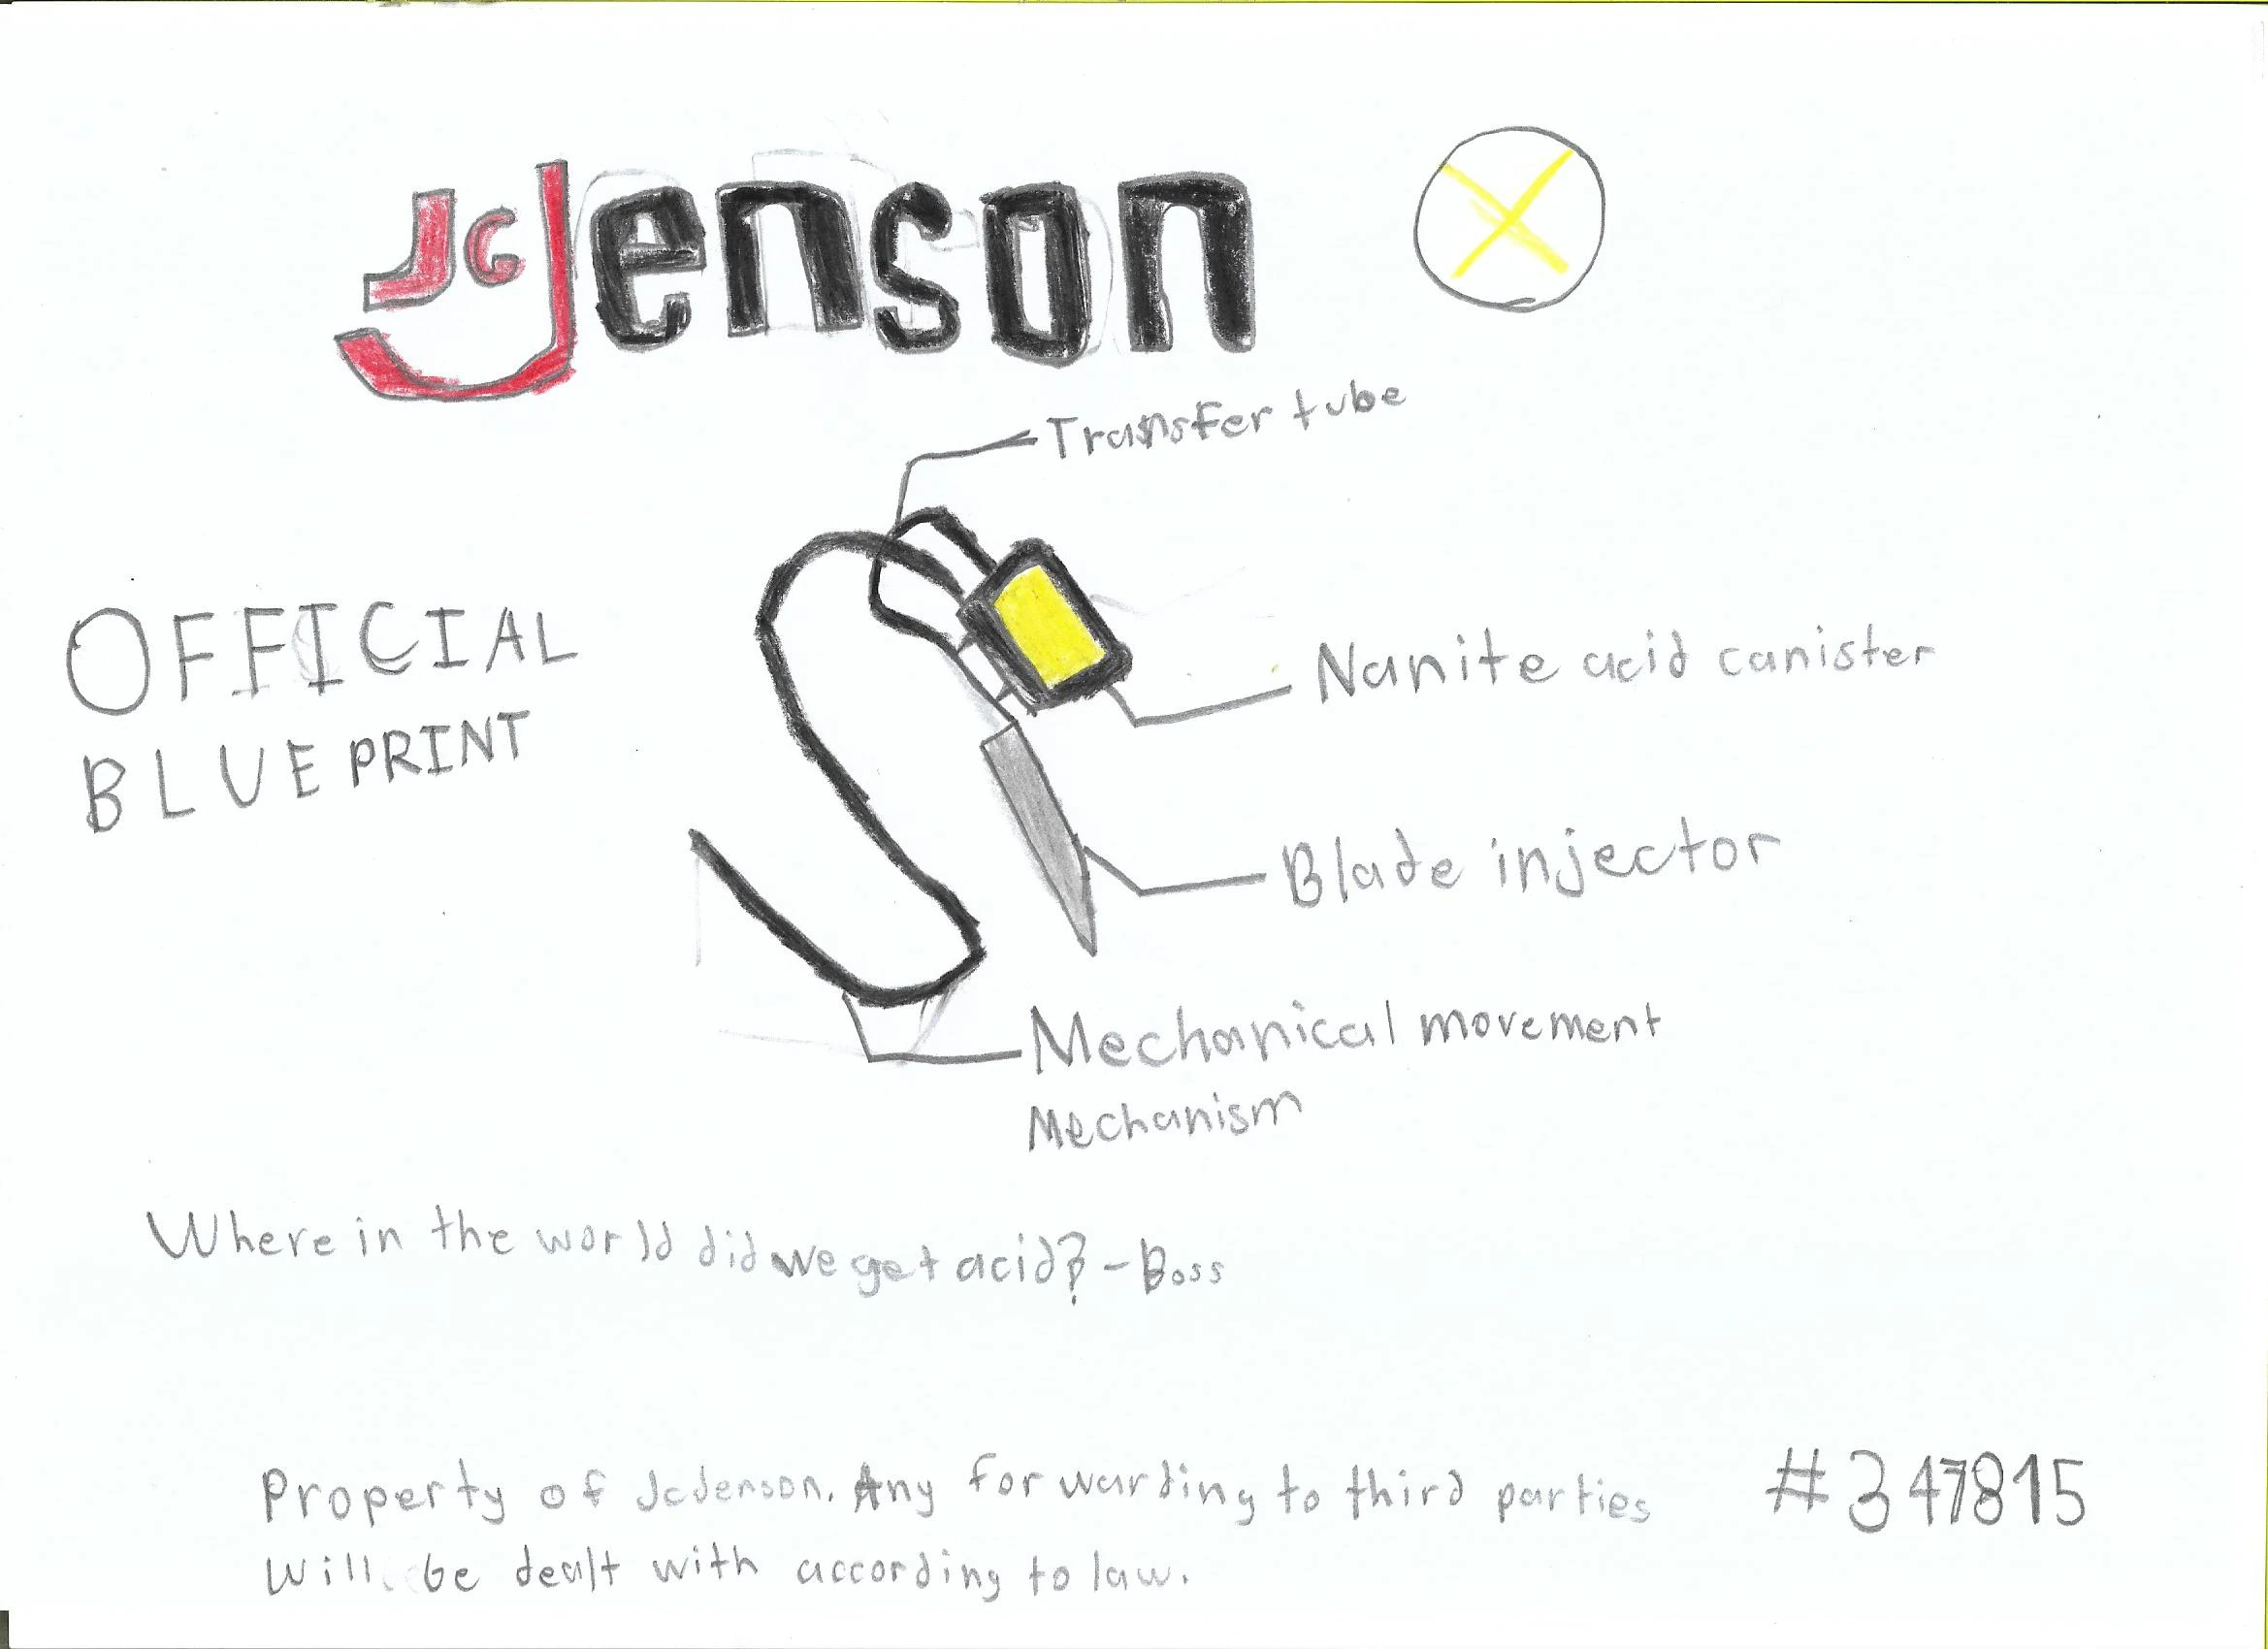 JCJenson
Transfer tube
OFFICIAL
BLUEPRINT
Nanite acid canister
Blade injector
Mechanical movement
Mechanism
Where in the world did we get acid? - Boss
Property of JcJenson. Any forwarding to third parties
will be dealt with according to law.
#347815